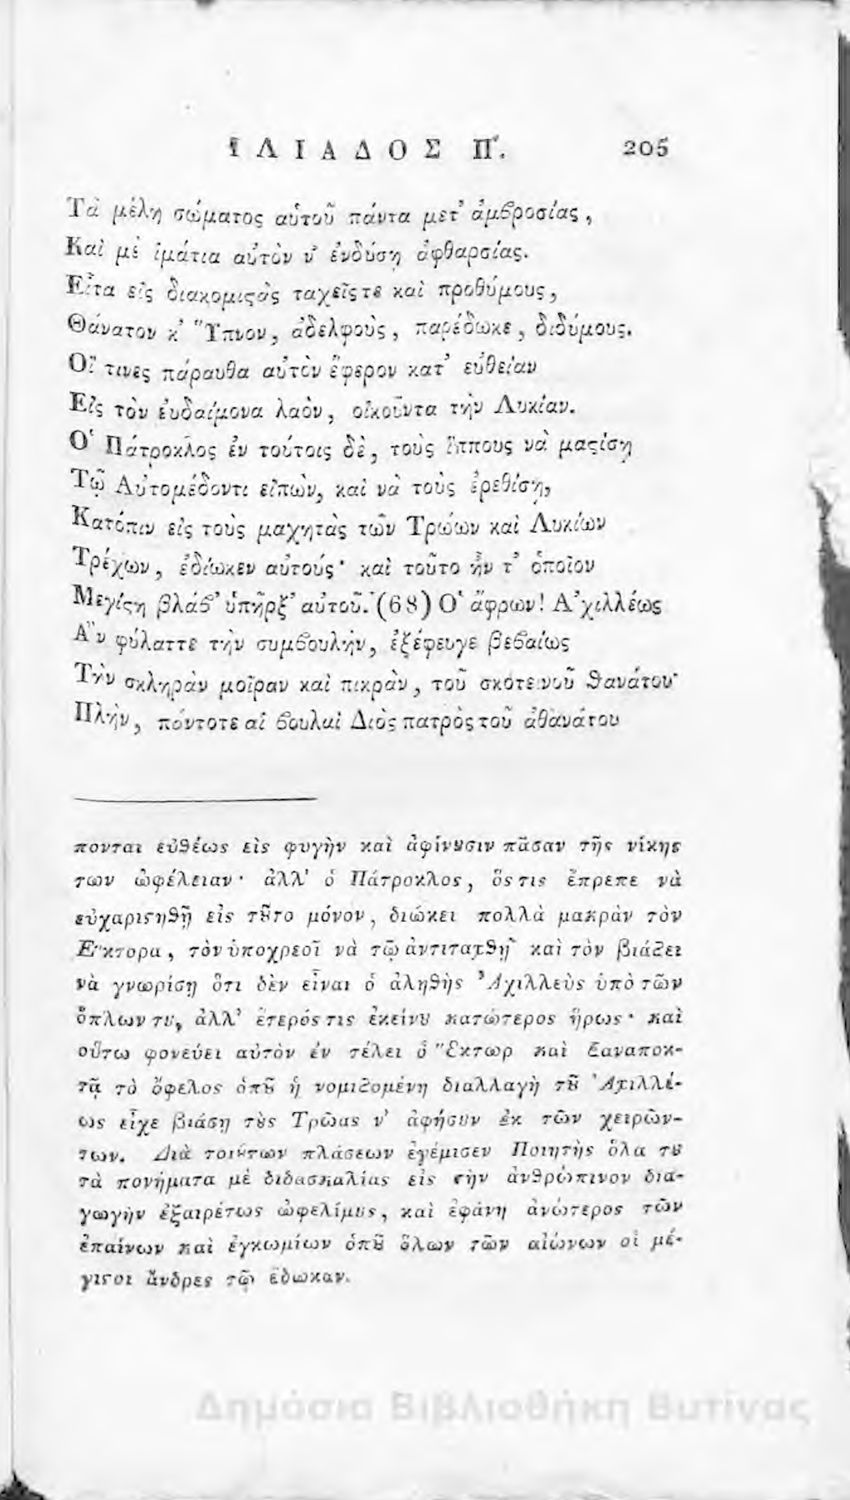 ΙΛΙΑΔΟΣ Π. 205
Τὰ μέλη σώματος αὑτοῦ πάντα μετ' ἀμβροσίας,
Καὶ μὲ ἱμάτια αὐτὸν ν' ἐνδύσῃ ἀφθαρσίας.
Εἶτα εἰς διακομιϛὰς ταχεῖς τε καὶ προθύμους,
Θάνατον κ' Ὕπνον, ἀδελφοὺς, παρέδωκε, διδύμους.
Οἵ τινες πάραυθα αὐτὸν ἔφερον κατ' εὐθεῖαν
Εἰς τὸν ἐυδαίμονα λαὸν, οἰκοῦντα τὴν Λυκίαν.
Ὁ Πάτροκλος ἐν τούτοις δὲ, τοὺς ἵππους νὰ μαϛίσῃ
Τῷ Αὐτομέδοντι εἰπὼν, καὶ νὰ τοὺς ἐρεθίσῃ,
Κατόπιν εἰς τοὺς μαχητὰς τῶν Τρώων καὶ Λυκίων
Τρέχων, ἐδίωκεν αὐτούς· καὶ τοῦτο ἦν τ' ὁποῖον
Μεγίϛη βλάβ' ὑπῆρξ' αὐτοῦ. (68) Ὁ ἄφρων! Ἀχιλλέως
Ἂν φύλαττε τὴν συμβουλὴν, ἐξέφευγε βεβαίως
Τὴν σκληρὰν μοῖραν καὶ πικρὰν, τοῦ σκοτεινοῦ θανάτου·
Πλὴν, πάντοτε αἱ βουλαὶ Διὸς πατρὸς τοῦ ἀθανάτου
πονται εὐθέως εἰς φυγὴν καὶ ἀφίνȣσιν πᾶσαν τῆς νίκης
των ὠφέλειαν· ἀλλ' ὁ Πάτροκλος, ὅςτις ἔπρεπε νὰ
εὐχαριϛηθῇ εἰς τȣ͂το μόνον, διώκει πολλὰ μακρὰν τὸν
Ἕκτορα, τὸν ὑποχρεοῖ νὰ τῷ ἀντιταχθῇ καὶ τὸν βιάζει
νὰ γνωρίσῃ ὅτι δὲν εἶναι ὁ ἀληθὴς Ἀχιλλεὺς ὑπὸ τῶν
ὅπλων τȣ, ἀλλ' ἕτερός τις ἐκείνȣ κατώτερος ἥρως· καὶ
οὕτω φονεύει αὐτὸν ἐν τέλει ὁ Ἕκτωρ καὶ ξαναποκ-
τᾷ τὸ ὄφελος ὁπȣ͂ ἡ νομιζομένη διαλλαγὴ τȣ͂ Ἀχιλλέ-
ως εἶχε βιάσῃ τȣ̀ς Τρῶας ν' ἀφήσȣν ἐκ τῶν χειρῶν-
των. Διὰ τοιȣ́των πλάσεων ἐγέμισεν Ποιητὴς ὅλα τȣ
τὰ πονήματα μὲ διδασκαλίας εἰς τὴν ἀνθρώπινον δια-
γωγὴν ἐξαιρέτως ὠφελίμȣς, καὶ ἐφάνη ἀνώτερος τῶν
ἐπαίνων καὶ ἐγκωμίων ὁπȣ͂ ὅλων τῶν αἰώνων οἱ μέ-
γιϛοι ἄνδρες τῷ ἔδωκαν.
Δημόσια Βιβλιοθήκη Βυτίνας